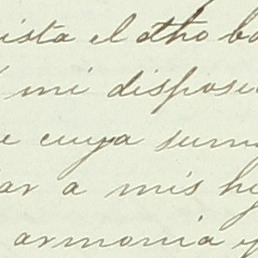 ista el otho ba
mi disposi
e cuya suma
ar a mis hi
armonia y